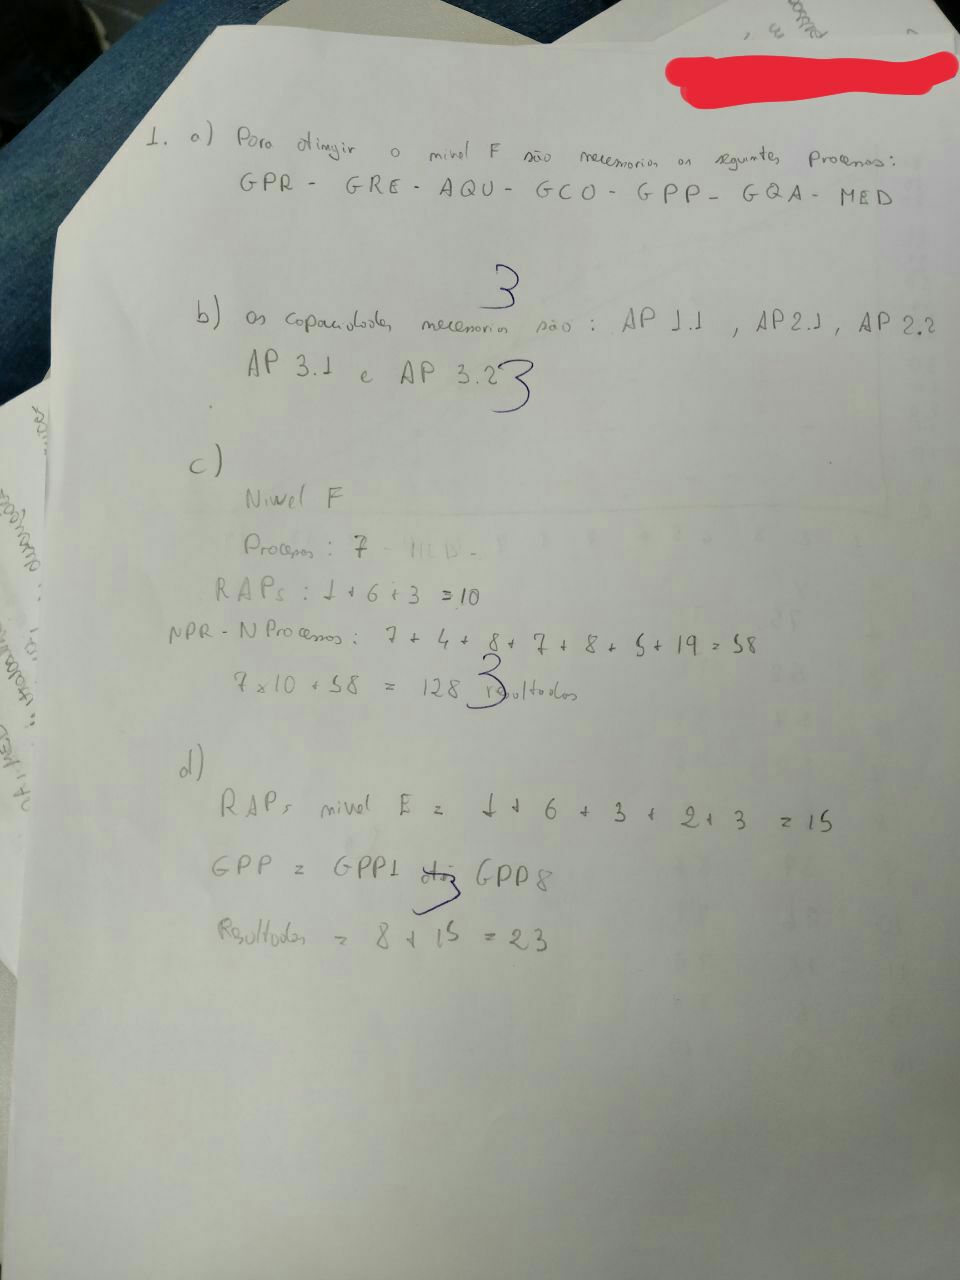 1. a) Para atingir o nivel F são necessarios os seguintes Processos:
GPR - GRE - AQU - GCO - GPP - GQA - MED
3
b) as capacidades necessarias são: AP 1.1, AP 2.1, AP 2.2
AP 3.1 e AP 3.2
3
c)
Nivel F
Processos: 7
RAPs: 1 + 6 + 3 = 10
NPR - N Processos: 7 + 4 + 8 + 7 + 8 + 5 + 19 = 58
7 x 10 + 58 = 128 resultados
3
d)
RAPs nivel E = 1 + 6 + 3 + 2 + 3 = 15
GPP = GPP1 até GPP8
3
Resultados = 8 + 15 = 23